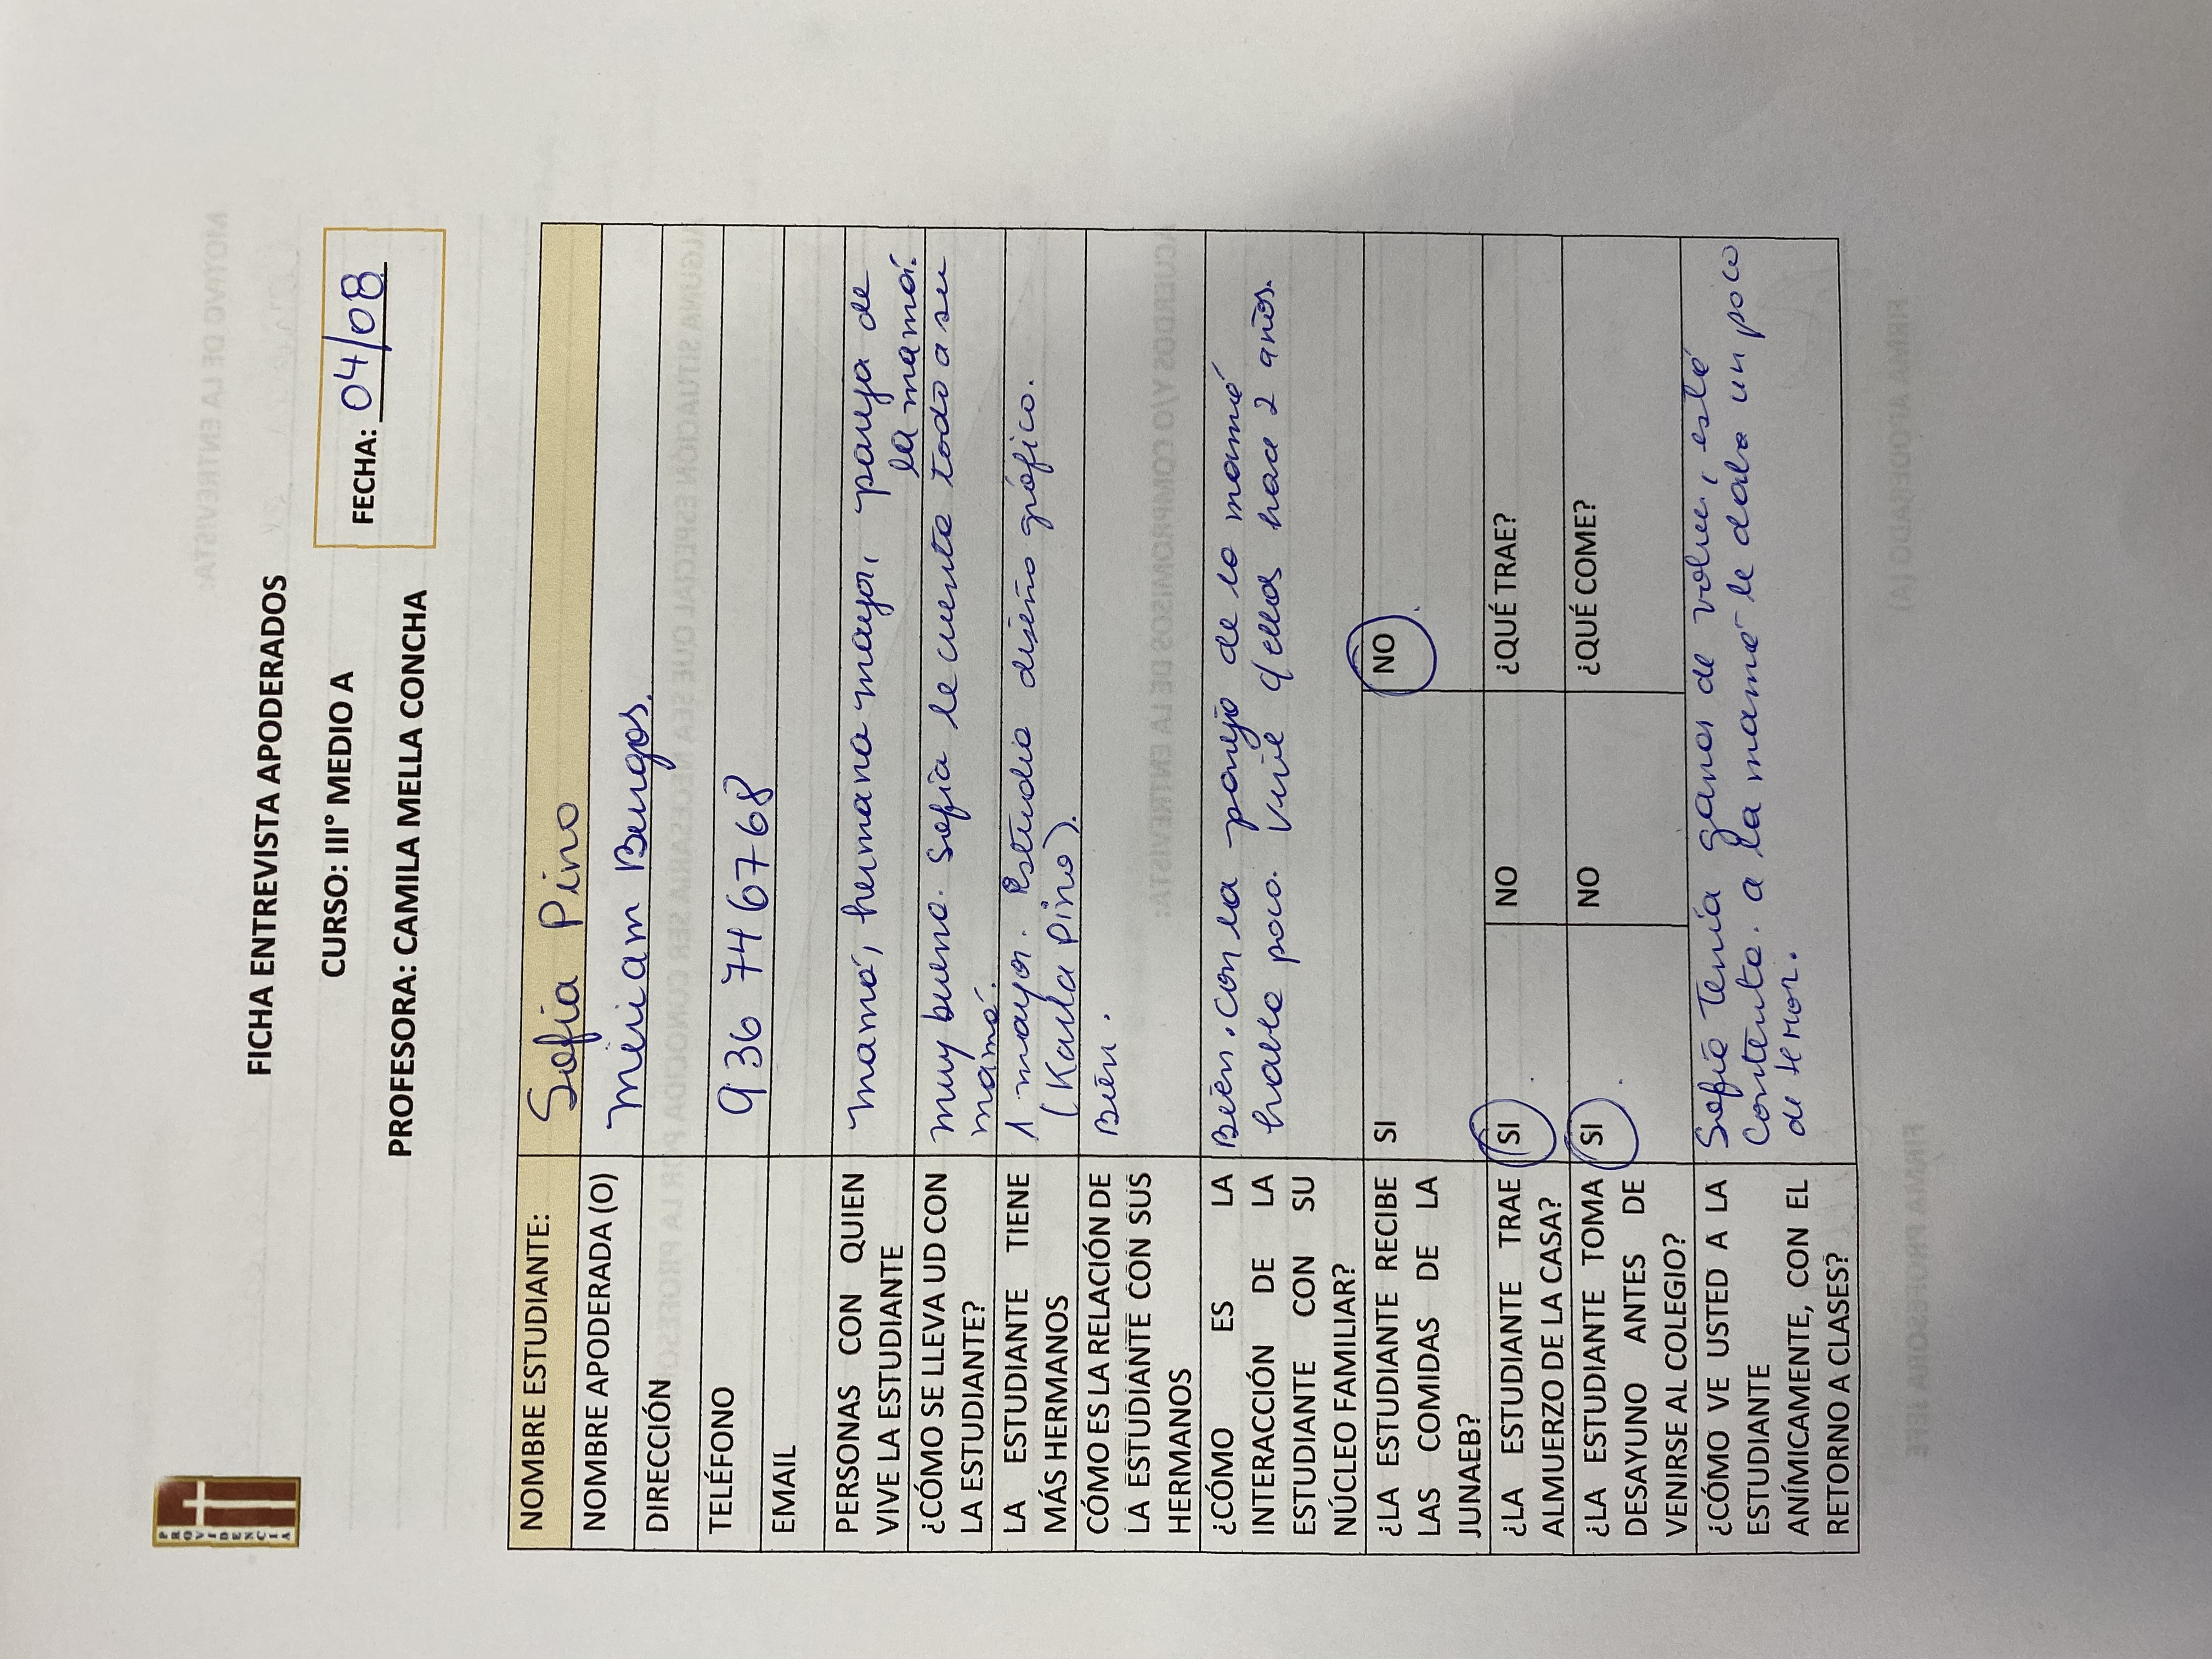 PROVIDENCIA
FICHA ENTREVISTA APODERADOS
CURSO: III° MEDIO A
PROFESORA: CAMILA MELLA CONCHA
FECHA: 04/08
NOMBRE ESTUDIANTE: Sofía Pino
NOMBRE APODERADA (O) Miriam Burgos.
DIRECCIÓN
TELÉFONO 936 74 67 68
EMAIL
PERSONAS CON QUIEN
VIVE LA ESTUDIANTE
mamá, hermana mayor, pareja de
la mamá.
¿CÓMO SE LLEVA UD CON
LA ESTUDIANTE?
muy buena. Sofía le cuenta todo a su
mamá.
LA ESTUDIANTE TIENE
MÁS HERMANOS
1 mayor. Estudia diseño gráfico.
(Karla Pino).
CÓMO ES LA RELACIÓN DE
LA ESTUDIANTE CON SUS
HERMANOS
Bien.
¿CÓMO ES LA
INTERACCIÓN DE LA
ESTUDIANTE CON SU
NÚCLEO FAMILIAR?
Bien. con la pareja de la mamá
habla poco. Vive c/ellas hace 2 años.
¿LA ESTUDIANTE RECIBE
LAS COMIDAS DE LA
JUNAEB?
SI NO
¿LA ESTUDIANTE TRAE
ALMUERZO DE LA CASA?
SI NO ¿QUÉ TRAE?
¿LA ESTUDIANTE TOMA
DESAYUNO ANTES DE
VENIRSE AL COLEGIO?
SI NO ¿QUÉ COME?
¿CÓMO VE USTED A LA
ESTUDIANTE
ANÍMICAMENTE, CON EL
RETORNO A CLASES?
Sofía tenía ganas de volver, está
contenta. a la mamá le daba un poco
de temor.